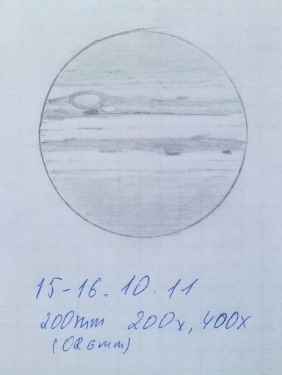 15-16.10.11
200mm 200x, 400x